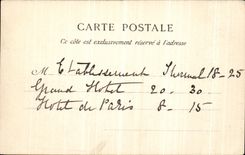 CARTE POSTALE
Ce côté est exclusivement réservé à l'adresse
M Etablissement Thermal 18-25
Grand Hotel 20-30
Hotel de Paris 8-15